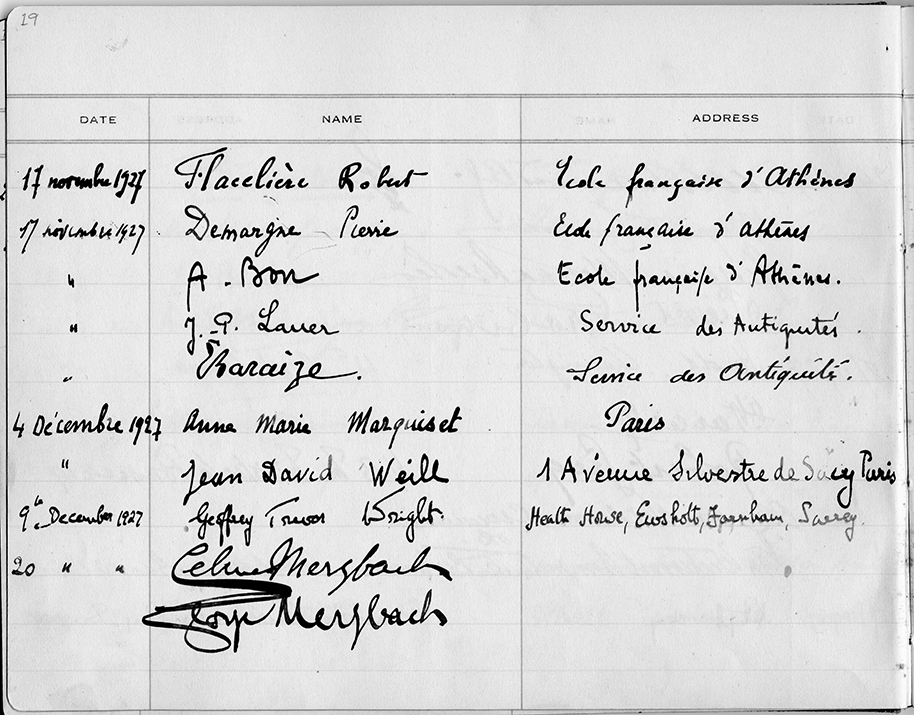 19
DATE NAME ADDRESS
17 novembre 1927 Flacelière Robert Ecole française d'Athènes
17 novembre 1927 Demargne Pierre Ecole française d'Athènes
" A. Bon Ecole française d'Athènes.
" J. P. Lauer Service des Antiquités.
" Baraize. Service des Antiquités.
4 Décembre 1927 Anne Marie Marquiset Paris
" Jean David Weill 1 Avenue Silvestre de Sacy Paris
9th December 1927 Geoffrey Trevor Wright. Heath House, Ewshott, Farnham, Surrey.
20 " " Celine Merzbach
George Merzbach